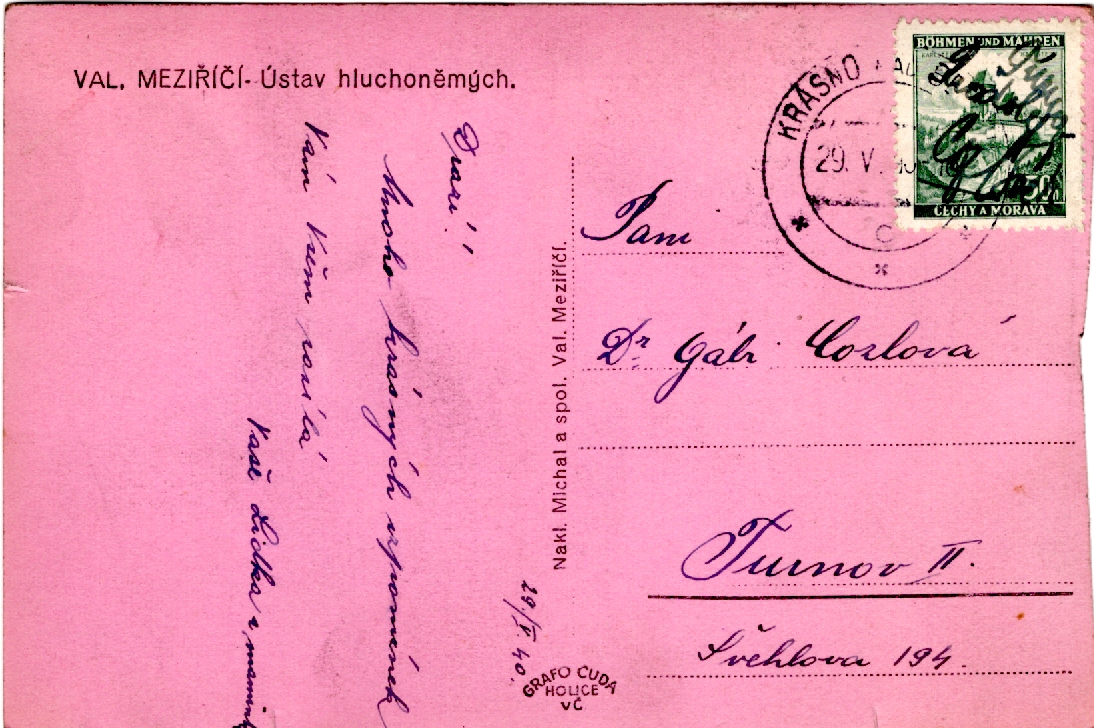 VAL. MEZIŘÍČÍ - Ústav hluchoněmých.
Drazí!
Mnoho krásných vzpomínek
Vám všem posílá
Vaše Lidka s mamink
29/V. 40.
Nakl. Michal a spol. Val. Meziříčí.
GRAFO ČUDA
HOLICE
VČ
KRÁSNO
29. V.
C
BÖHMEN UND MÄHREN
50
ČECHY A MORAVA
Paní
Dr Gábr.
Turnov II.
Švehlova 194.